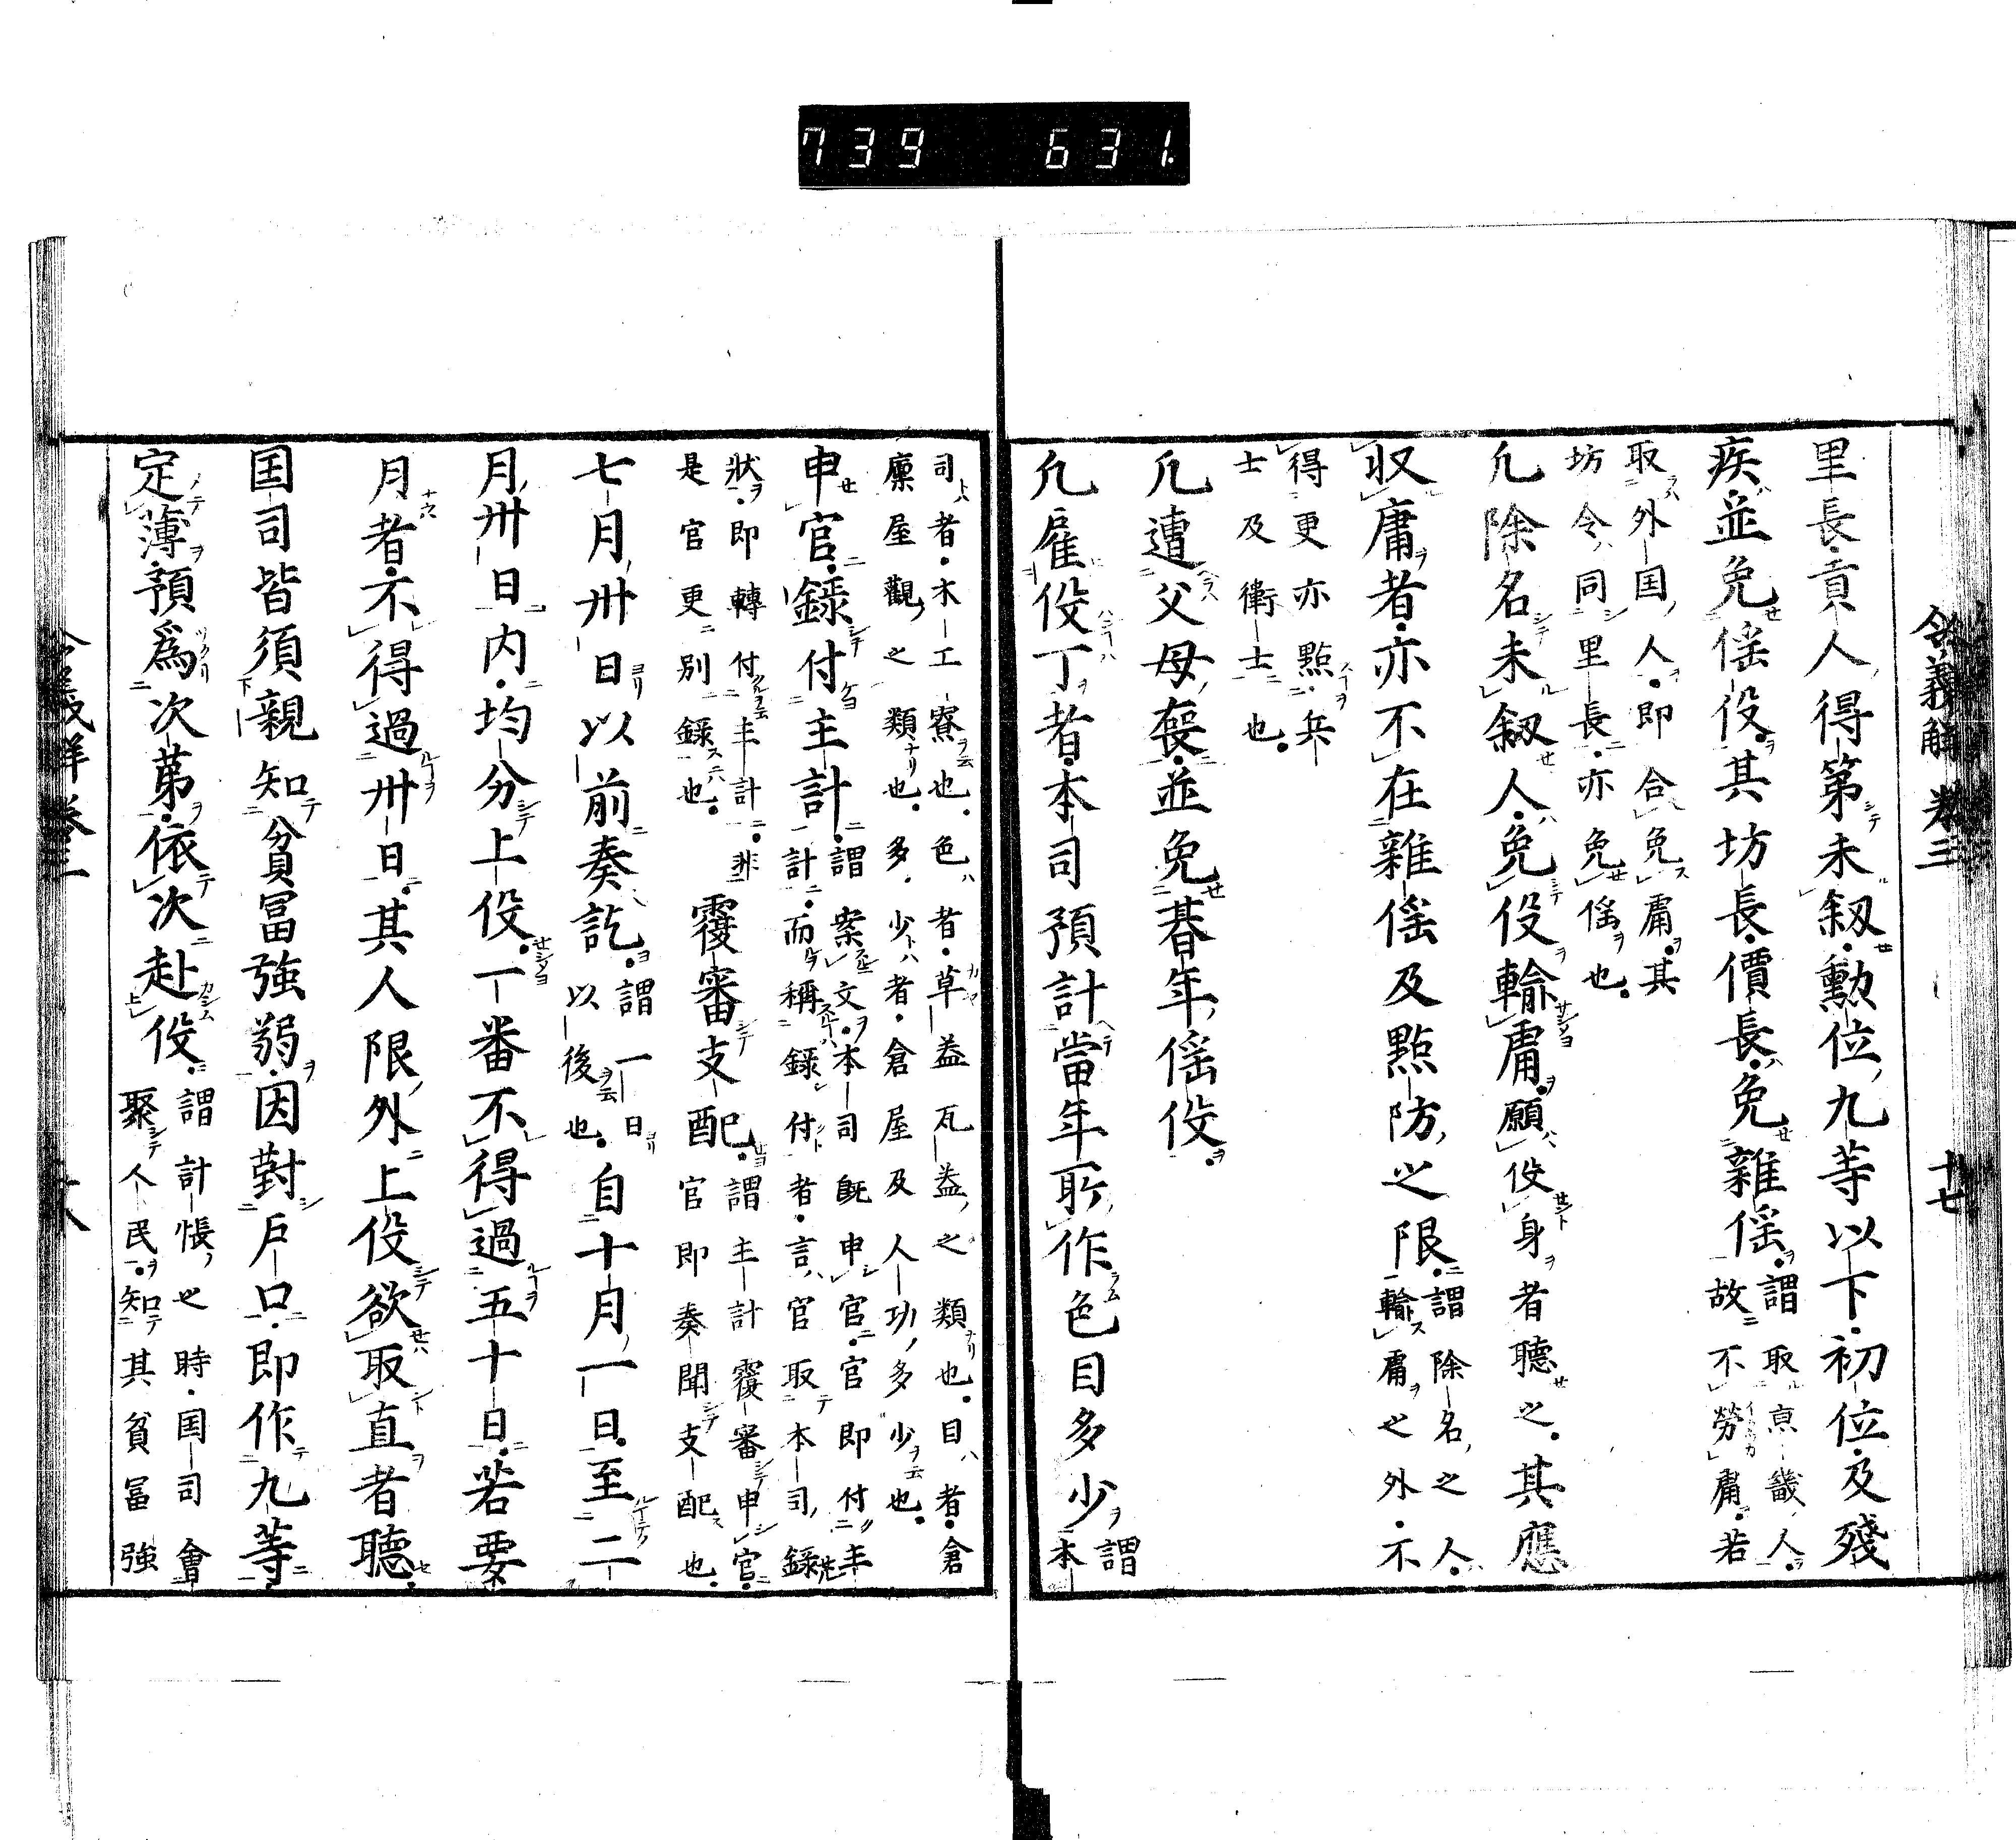 739 631
令義解 卷三 十七
里長貢人得第未叙勲位九等以下初位及殘
疾並免徭役其坊長價長免雜徭謂取京畿人
故不勞庸若
取外国人即合免庸其
坊令同里長亦免徭也
凡除名未叙人免役輸庸願役身者聽之其應
収庸者亦不在雜徭及點防之限謂除名之人
輸庸之外不
得更亦點兵
士及衛士也
凡遭父母喪並免朞年徭役
凡雇役丁者本司預計當年所作色目多少謂
本
司者木工寮也色者草葢瓦葢之類也目者倉
廩屋觀之類也多少者倉屋及人功多少也
申官録付主計謂案文本司既申官官即付主
計而稱録付者言官取本司録
狀即轉付主計非
是官更別録也
覆審支配謂主計覆審申官
官即奏聞支配也
七月卅日以前奏訖謂一日
以後也
自十月一日至二
月卅日内均分上役一番不得過五十日若要
月者不得過卅日其人限外上役欲取直者聽
国司皆須親知貧冨強弱因對戸口即作九等
定薄預爲次第依次赴役謂計帳之時国司會
聚人民知其貧冨強